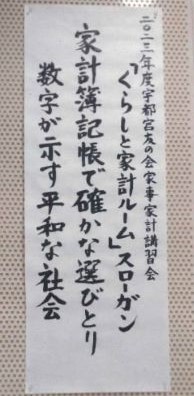 二〇二三年度宇都宮友の会家事家計講習会
「くらしと家計ルーム」スローガン
家計簿記帳で確かな選びとり
数字が示す平和な社会